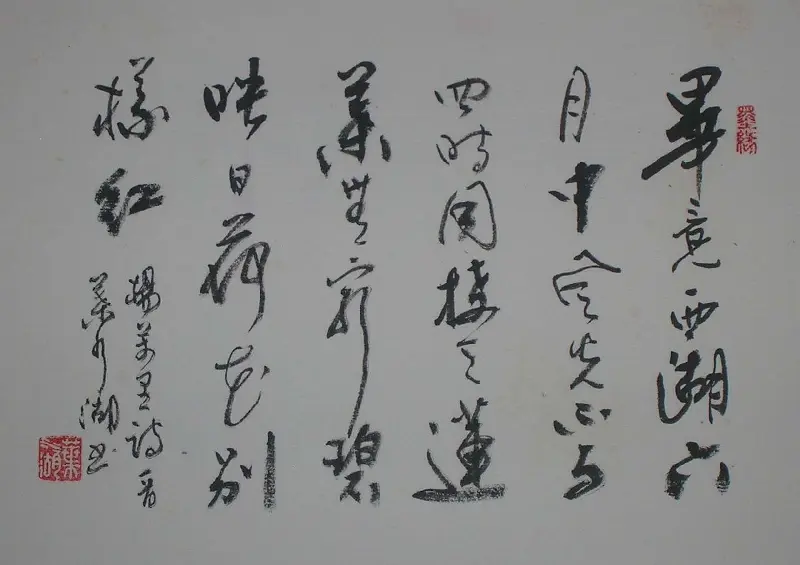 畢竟西湖六
月中風光不与
四時同接天蓮
葉無窮碧
映日荷花別
樣紅
楊萬里詩首
葉湖书
墨緣